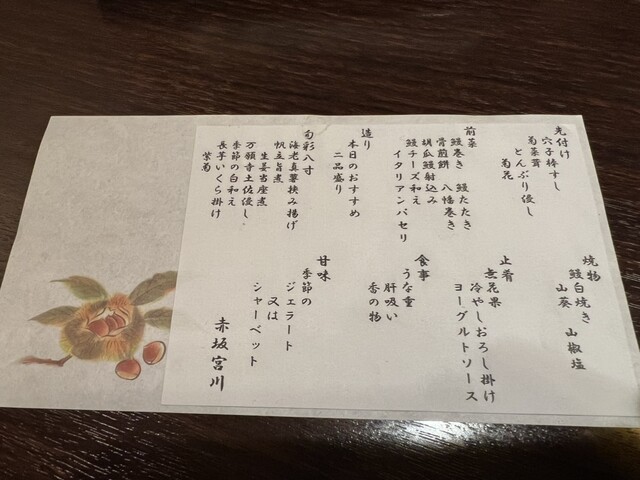 先付け
穴子棒すし
菊菜茸どんぶり浸し
菊花
前菜
鰻巻き 鰻たたき
骨煎餅 八幡巻き
胡瓜鰻射込み
鰻チーズ和え
イタリアンパセリ
造り
本日のおすすめ
二品盛り
旬彩八寸
海老真薯挟み揚げ
帆立旨煮
生姜当座煮
万願寺土佐浸し
季節の白和え
長芋いくら掛け
紫菊
焼物
鰻白焼き
山葵 山椒塩
止肴
無花果
冷やしおろし掛け
ヨーグルトソース
食事
うな重
肝吸い
香の物
甘味
季節の
ジェラート
又は
シャーベット
赤坂宮川